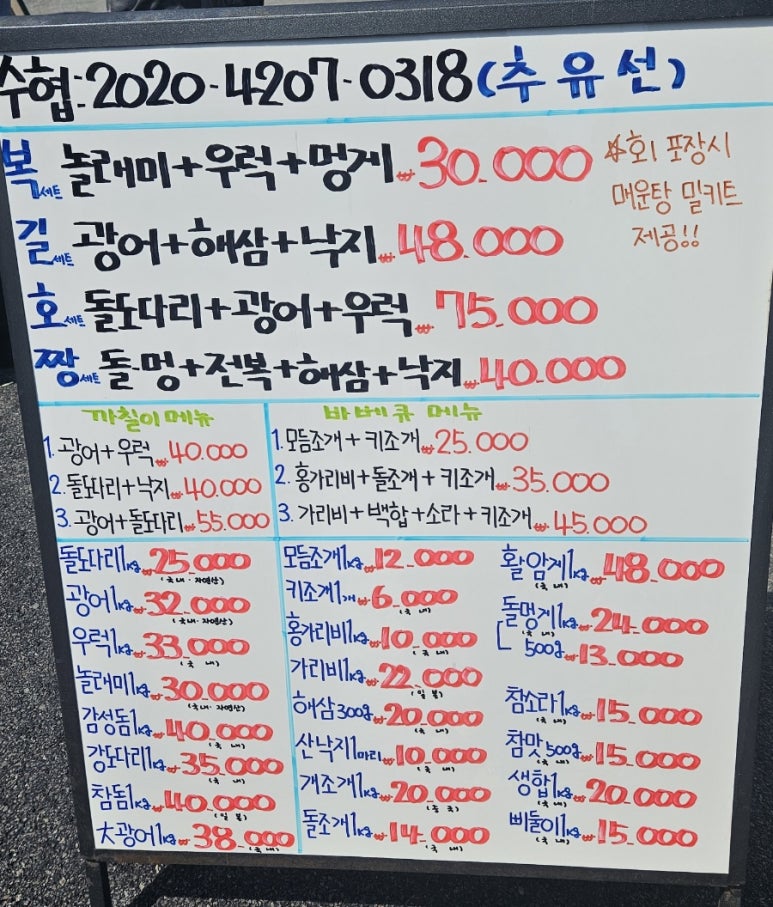 수협:2020-4207-0318(추유선)
복세트 놀래미+우럭+멍게 ₩30.000
길세트 광어+해삼+낙지 ₩48.000
호세트 돌도다리+광어+우럭 ₩75.000
짱세트 돌멍+전복+해삼+낙지 ₩40.000
☆회 포장시
매운탕 밀키트
제공!!
까칠이 메뉴
1. 광어+우럭 ₩40.000
2. 돌도다리+낙지 ₩40.000
3. 광어+돌도다리 ₩55.000
바베큐 메뉴
1. 모듬조개+키조개 ₩25.000
2. 홍가리비+돌조개+키조개 ₩35.000
3. 가리비+백합+소라+키조개 ₩45.000
돌도다리1kg ₩25.000
(국내·자연산)
광어1kg ₩32.000
(국내·자연산)
우럭1kg ₩33.000
(국내)
놀래미1kg ₩30.000
(국내·자연산)
감성돔1kg ₩40.000
(국내)
강도다리1kg ₩35.000
(국내)
참돔1kg ₩40.000
(일본)
大광어1kg ₩38.000
(국내)
모듬조개1kg ₩12.000
키조개1개 ₩6.000
(국내)
홍가리비1kg ₩10.000
(국내)
가리비1kg ₩22.000
(일본)
해삼300g ₩20.000
(국내)
산낙지1마리 ₩10.000
(국내)
개조개1kg ₩20.000
(중국)
돌조개1kg ₩14.000
(국내)
활암게1kg ₩48.000
(국내)
돌멍게1kg ₩24.000
(국내)
500g ₩13.000
참소라1kg ₩15.000
(국내)
참맛500g ₩15.000
(국내)
생합1kg ₩20.000
(국내)
삐뚤이1kg ₩15.000
(국내)